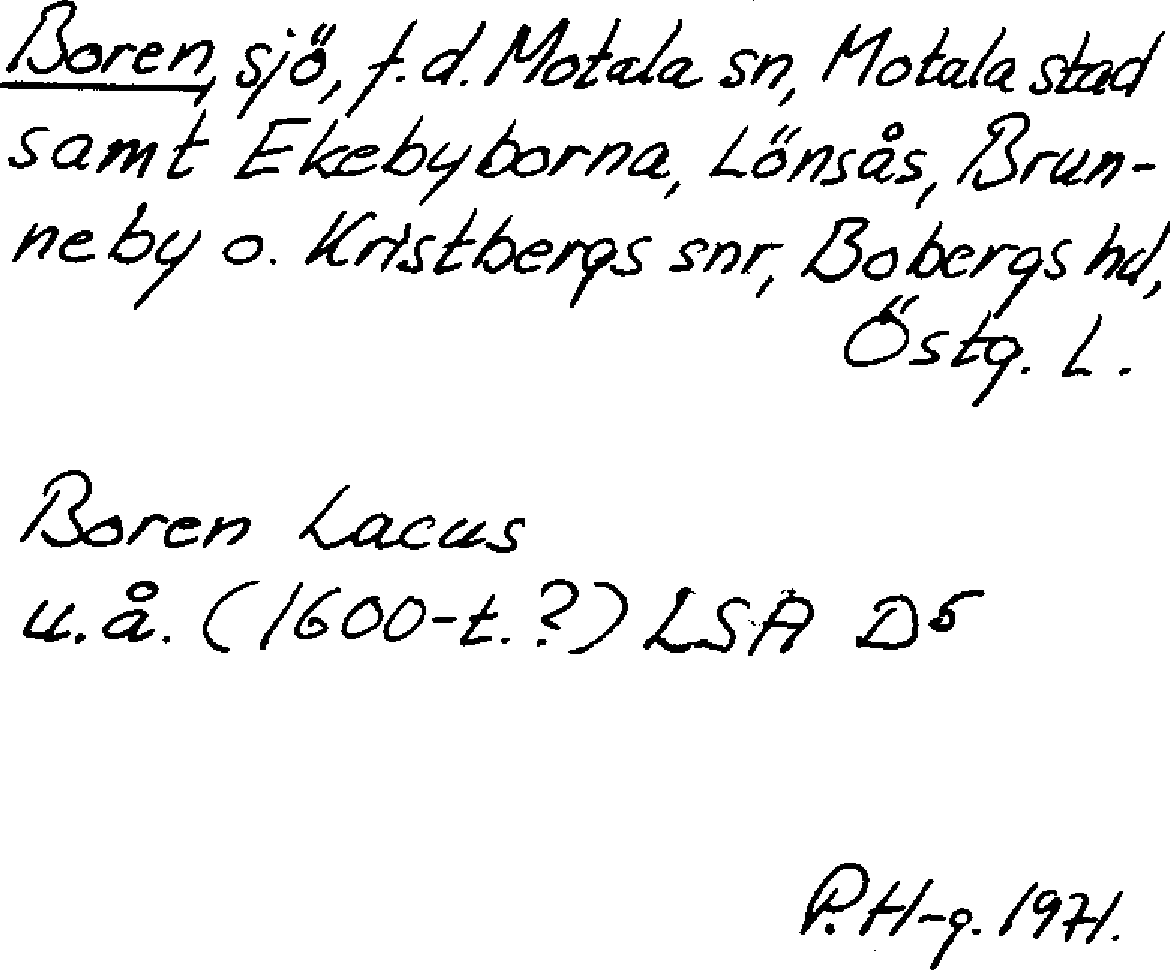 Boren, sjö, f.d. Motala sn, Motala stad
samt Ekebyborna, Lönsås, Brun-
neby o. Kristbergs snr, Bobergs hd,
Östg. L.
Boren Lacus
u.å. (1600-t.?) LSA D5
P. H-g. 1971.